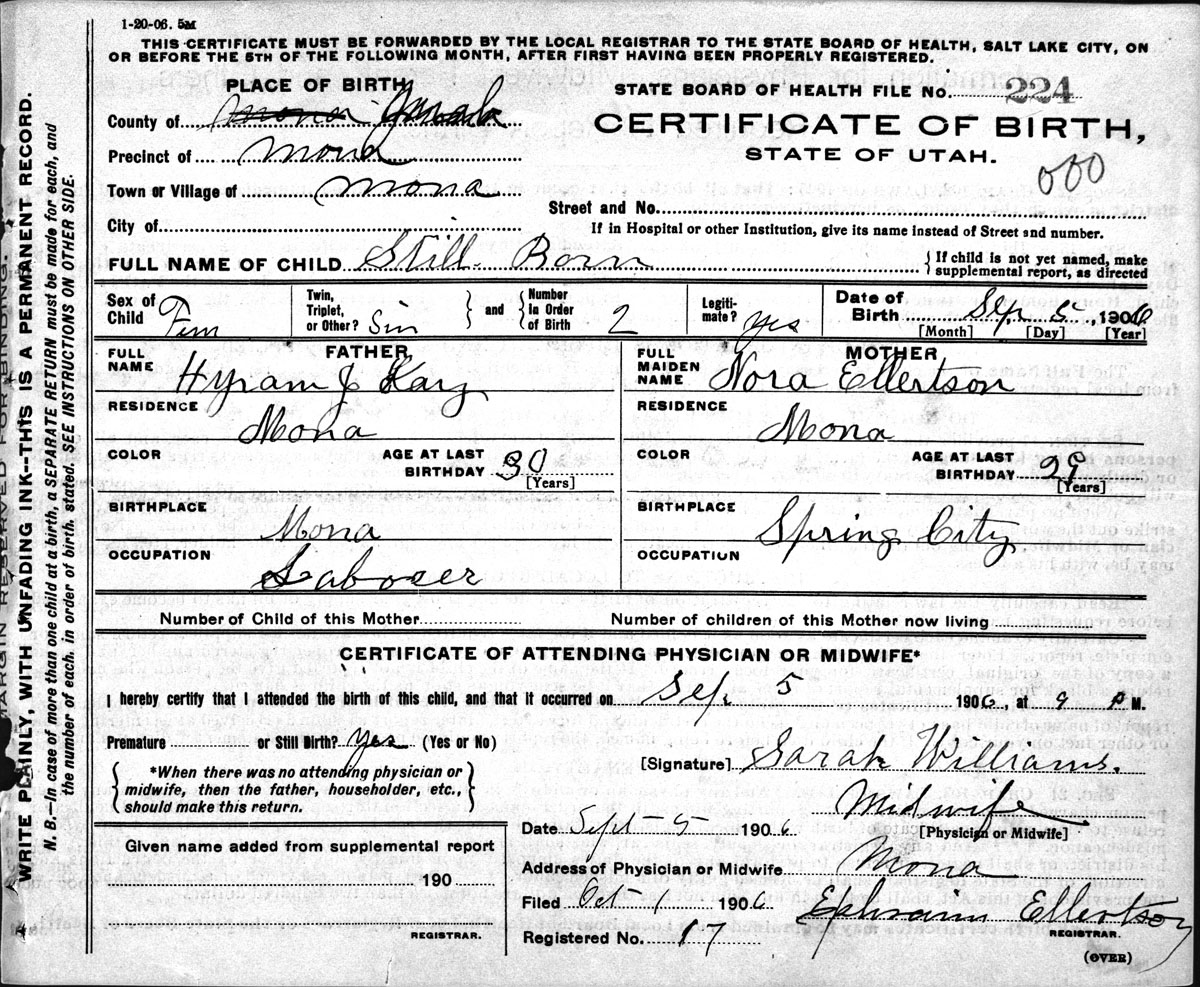 1-20-06. 5M
THIS CERTIFICATE MUST BE FORWARDED BY THE LOCAL REGISTRAR TO THE STATE BOARD OF HEALTH, SALT LAKE CITY, ON
OR BEFORE THE 5TH OF THE FOLLOWING MONTH, AFTER FIRST HAVING BEEN PROPERLY REGISTERED.
PLACE OF BIRTH
STATE BOARD OF HEALTH FILE No. 224
County of Mona Juab
CERTIFICATE OF BIRTH,
Precinct of Mona
STATE OF UTAH.
000
Town or Village of Mona
Street and No.
City of
If in Hospital or other Institution, give its name instead of Street and number.
FULL NAME OF CHILD Still Born
If child is not yet named, make
supplemental report, as directed
Sex of Child Fem
Twin, Triplet, or Other? Sin
and
Number in Order of Birth 2
Legitimate? yes
Date of Birth Sep 5, 1906
[Month] [Day] [Year]
FATHER
FULL NAME Hyram J
RESIDENCE Mona
COLOR
AGE AT LAST BIRTHDAY 30
[Years]
BIRTHPLACE Mona
OCCUPATION Laborer
MOTHER
FULL MAIDEN NAME Nora Ellertson
RESIDENCE Mona
COLOR
AGE AT LAST BIRTHDAY 29
[Years]
BIRTHPLACE Spring City
OCCUPATION
Number of Child of this Mother
Number of children of this Mother now living
CERTIFICATE OF ATTENDING PHYSICIAN OR MIDWIFE*
I hereby certify that I attended the birth of this child, and that it occurred on Sep 5 1906, at 9 P M.
Premature or Still Birth? Yes (Yes or No)
[Signature] Sarah Williams.
*When there was no attending physician or
midwife, then the father, householder, etc.,
should make this return.
Midwife
[Physician or Midwife]
Date Sept 5 1906
Given name added from supplemental report
190
REGISTRAR.
Address of Physician or Midwife Mona
Filed Oct 1 1906
Ephraim Ellertson
REGISTRAR.
Registered No. 17
(OVER)
MARGIN RESERVED FOR BINDING.
WRITE PLAINLY, WITH UNFADING INK—THIS IS A PERMANENT RECORD.
N. B.—In case of more than one child at a birth, a SEPARATE RETURN must be made for each, and
the number of each, in order of birth, stated. SEE INSTRUCTIONS ON OTHER SIDE.